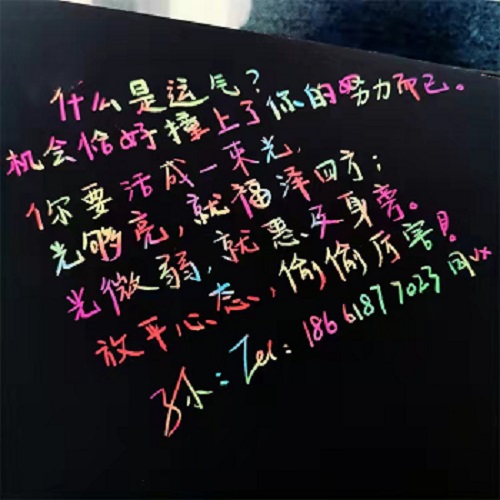 什么是运气?
机会恰好撞上了你的努力而已。
你要活成一束光,
光够亮,就福泽四方;
光微弱,就惠及身旁。
放平心态,偷偷厉害!
孙:Tel:18661877023 同vx